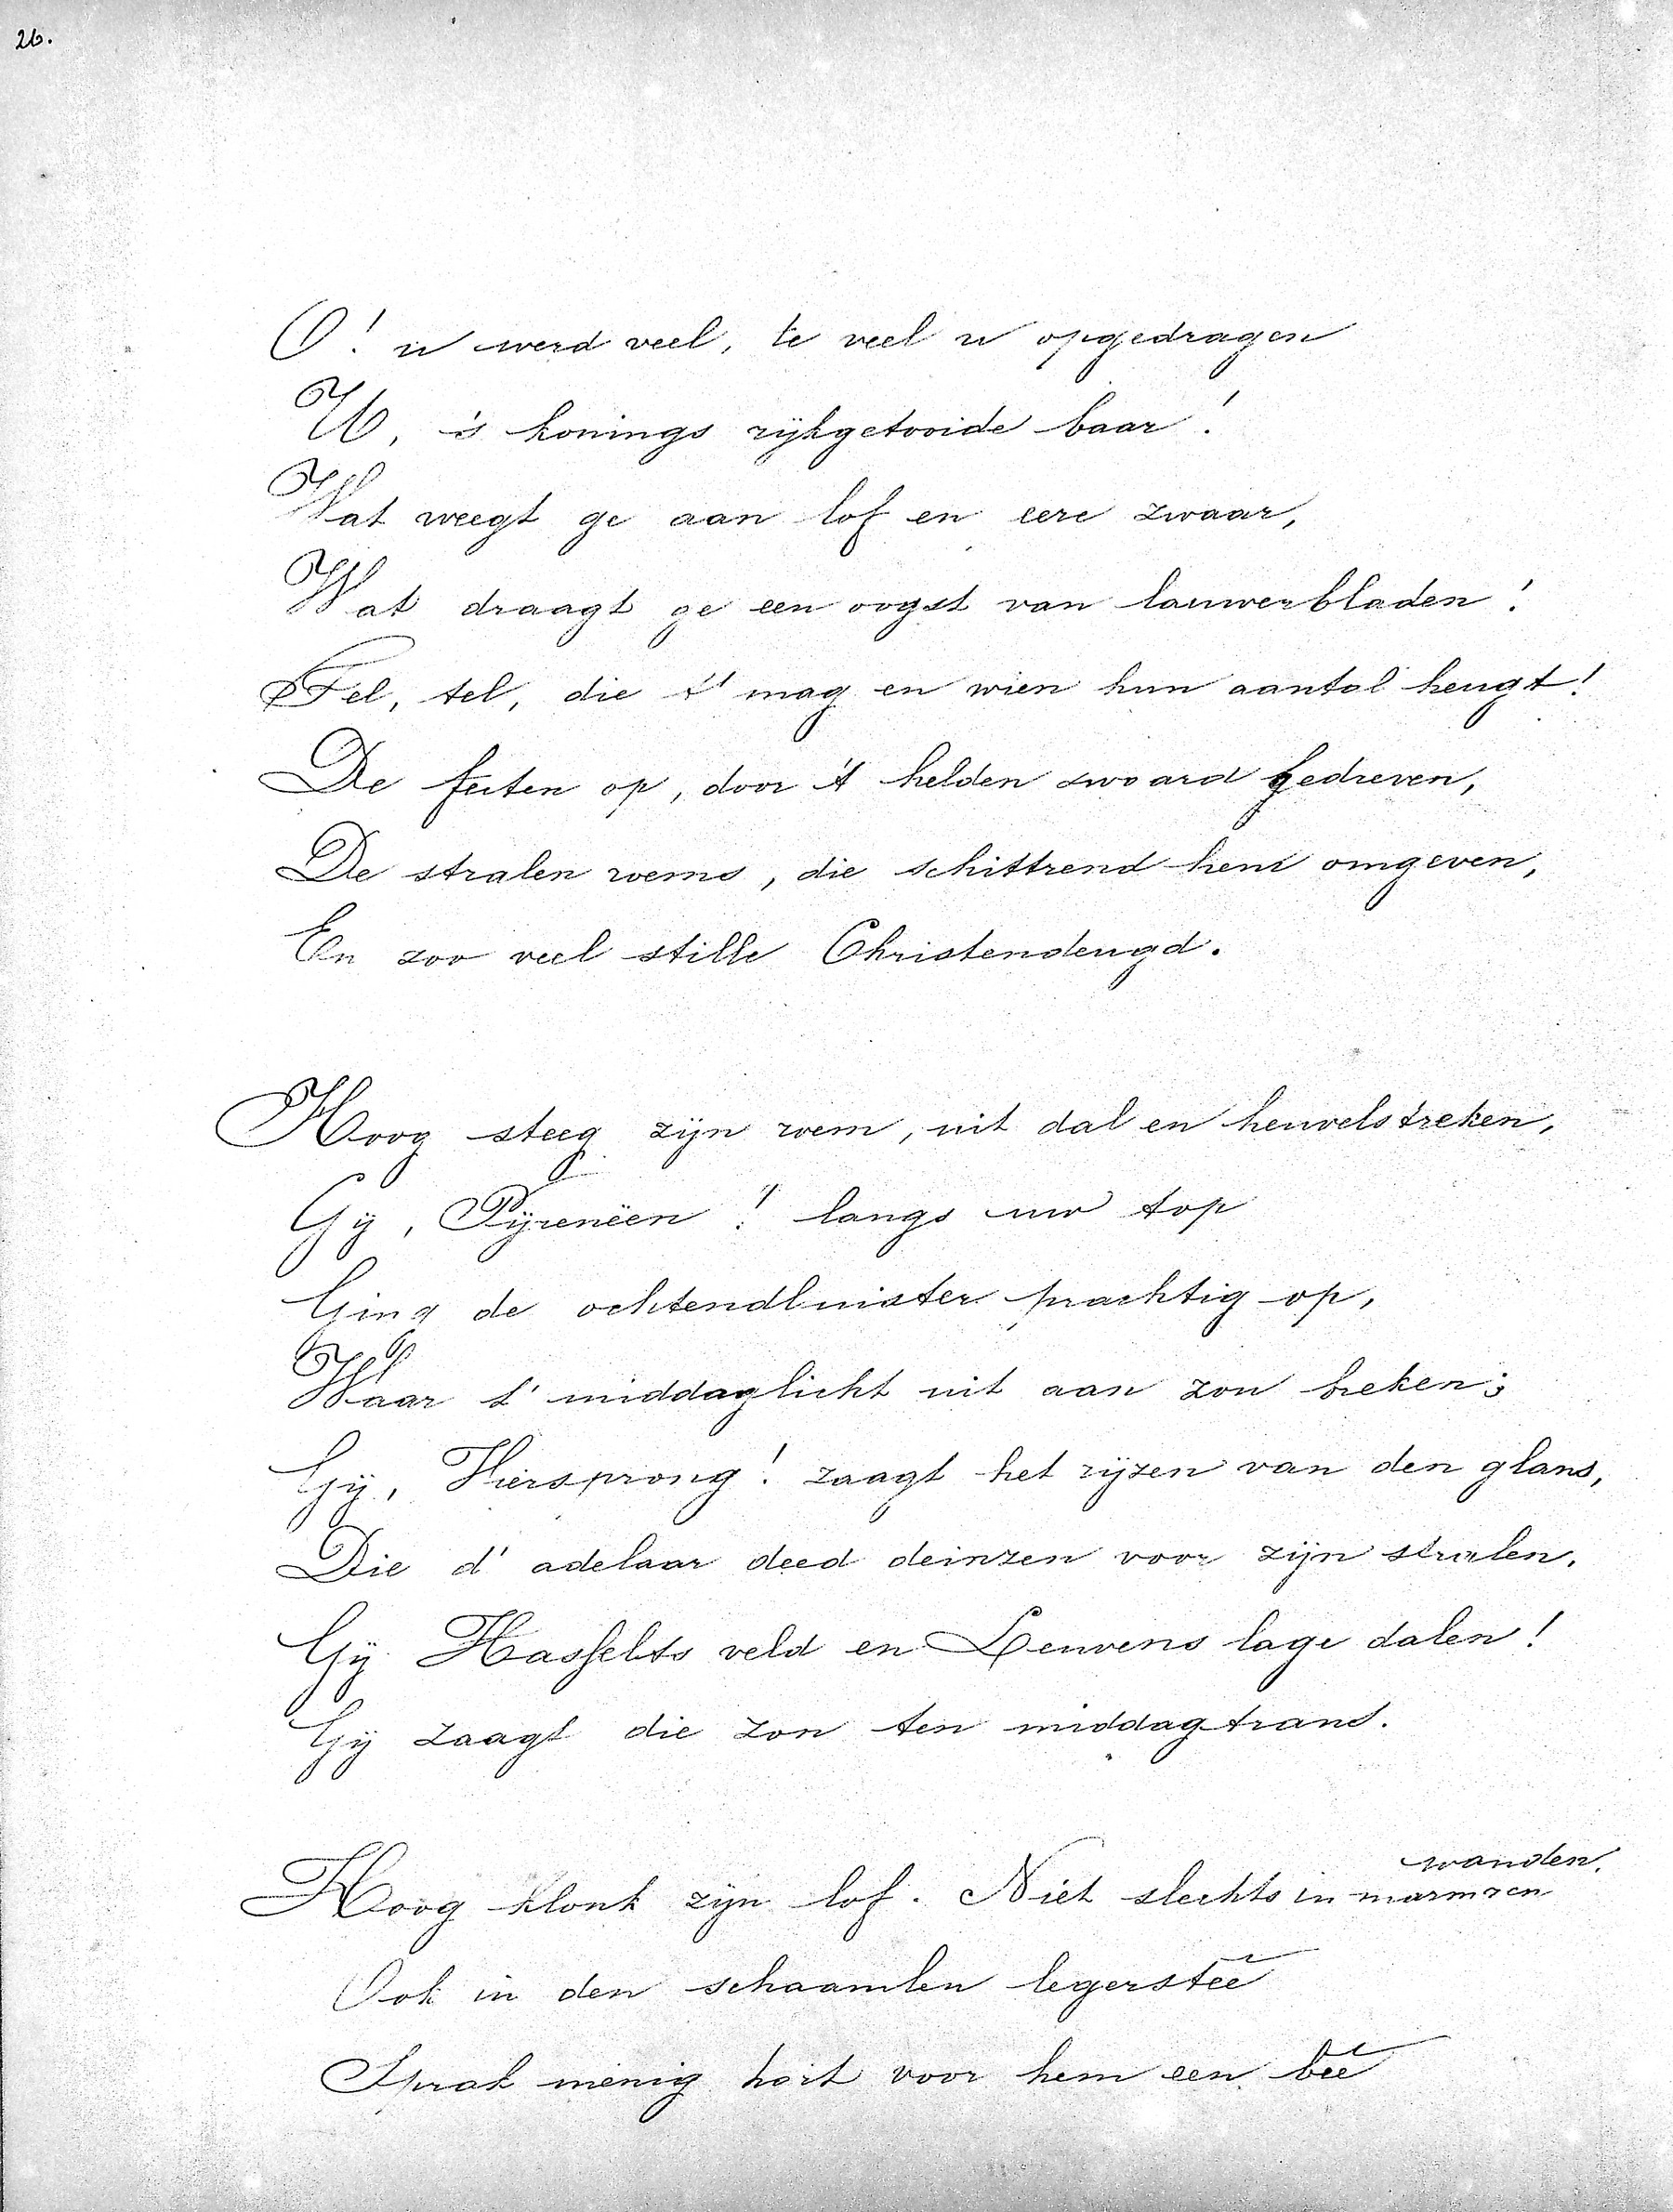 26.
O! u werd veel, te veel u opgedragen
U, 's konings rijkgetooide baar!
Wat weegt ge aan lof en eere zwaar,
Wat draagt ge een oogst van lauwerbladen!
Tel, tel, die 't mag en wien hun aantal heugt!
De feiten op, door 't helden zwaard bedreven,
De stralen roems, die schittrend hem omgeven,
En zoo veel stille Christendeugd.
Hoog steeg zijn roem, uit dal en heuvelstreken,
Gij, Pijreneën! langs uw top
Ging de ochtendluister prachtig op,
Waar 't middaglicht uit aan zou breken;
Gij, Viersprong! zaagt het rijzen van den glans,
Die d' adelaar deed deinzen voor zijn stralen.
Gij Hasselts veld en Leuvens lage dalen!
Gij zaagt die zon ten middagtrans.
Hoog klonk zijn lof. Niet slechts in marmren wanden.
Ook in den schaamlen legersteê
Sprak menig hart voor hem een beê